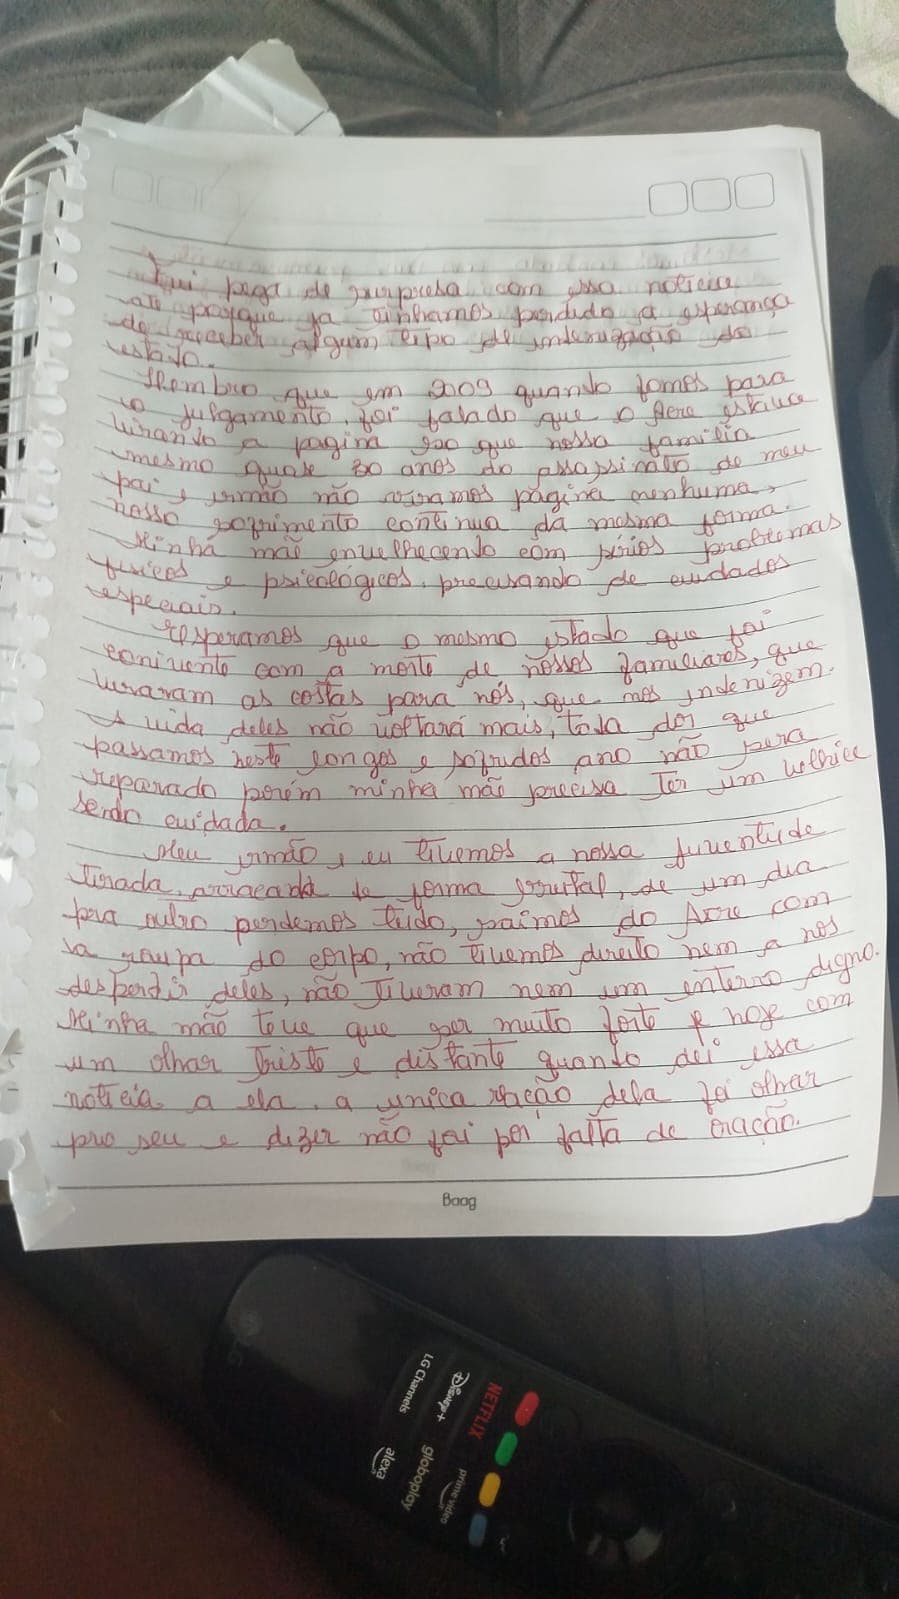 Fui pega de surpresa com essa noticia
até porque ja tinhamos perdido a esperança
de receber algum tipo de indenização do
estado.
Lembro que em 2009 quando fomos para
o julgamento, foi falado que o Acre estava
virando a pagina so que nossa familia
mesmo quase 30 anos do assassinato de meu
pai e irmão não viramos página nenhuma,
nosso sofrimento continua da mesma forma.
Minha mãe envelhecendo com sérios problemas
fisicos e psicológicos, precisando de cuidados
especais.
Esperamos que o mesmo estado que foi
conivente com a morte de nossos familiares, que
viraram as costas para nós, que nos indenizem.
A vida deles não voltará mais, toda dor que
passamos neste longos e sofridos ano não sera
reparado porém minha mãe precisa ter um velhice
sendo cuidada.
Meu irmão e eu tivemos a nossa juventude
tirada, arrancada de forma brutal, de um dia
pra outro perdemos tudo, saimos do Acre com
a roupa do corpo, não tivemos direito nem a nos
despedir deles, não tiveram nem um enterro digno.
Minha mãe teve que ser muito forte e hoje com
um olhar triste e distante quando dei essa
noticia a ela, a unica reação dela foi olhar
pro seu e dizer não foi por falta de oração.
Baag
LG
LG Channels
Disney+
NETFLIX
alexa
globoplay
prime video